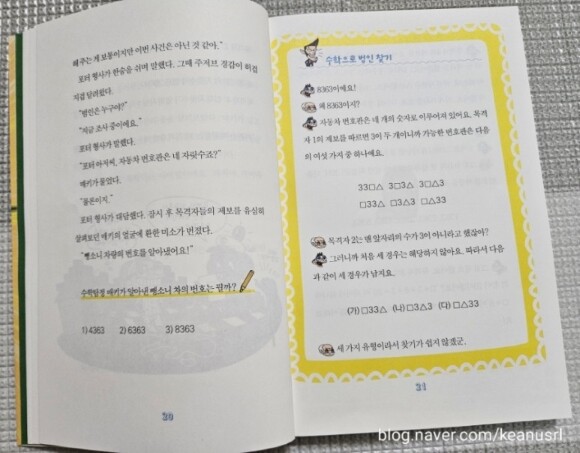 해주는 게 보통이지만 이번 사건은 아닌 것 같아."
포터 형사가 한숨을 쉬며 말했다. 그때 주저브 경감이 허겁
지겁 달려왔다.
"범인은 누구야?"
"지금 조사 중이에요."
포터 형사가 말했다.
"포터 아저씨, 자동차 번호판은 네 자릿수죠?"
매키가 물었다.
"물론이지."
포터 형사가 대답했다. 잠시 후 목격자들의 제보를 유심히
살펴보던 매키의 얼굴에 환한 미소가 번졌다.
"뺑소니 차량의 번호를 알아냈어요!"
수학탐정 매키가 알아낸 뺑소니 차의 번호는 뭘까?
1) 4363 2) 6363 3) 8363
20
수학으로 범인 찾기
8363이에요!
왜 8363이지?
자동차 번호판은 네 개의 숫자로 이루어져 있어요. 목격
자 1의 제보를 따르면 3이 두 개이니까 가능한 번호판은 다음
의 여섯 가지 중 하나예요.
33□△ 3□3△ 3□△3
□33△ □3△3 □△33
목격자 2는 맨 앞자리의 수가 3이 아니라고 했잖아?
그러니까 처음 세 경우는 해당하지 않아요. 따라서 다음
과 같이 세 경우가 남지요.
(가) □33△ (나) □3△3 (다) □△33
세 가지 유형이라서 찾기가 쉽지 않겠군.
21
blog.naver.com/keanusrl